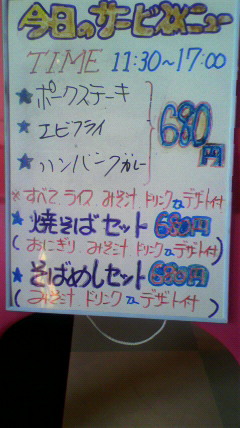 今日のサービスメニュー
TIME 11:30~17:00
★ポークステーキ
★エビフライ
★ハンバーグカレー
680円
※すべて、ライス、みそ汁、ドリンク orデザート付
★焼そばセット 680円
(おにぎり、みそ汁、ドリンク orデザート付)
★そばめしセット 680円
(みそ汁、ドリンク orデザート付)